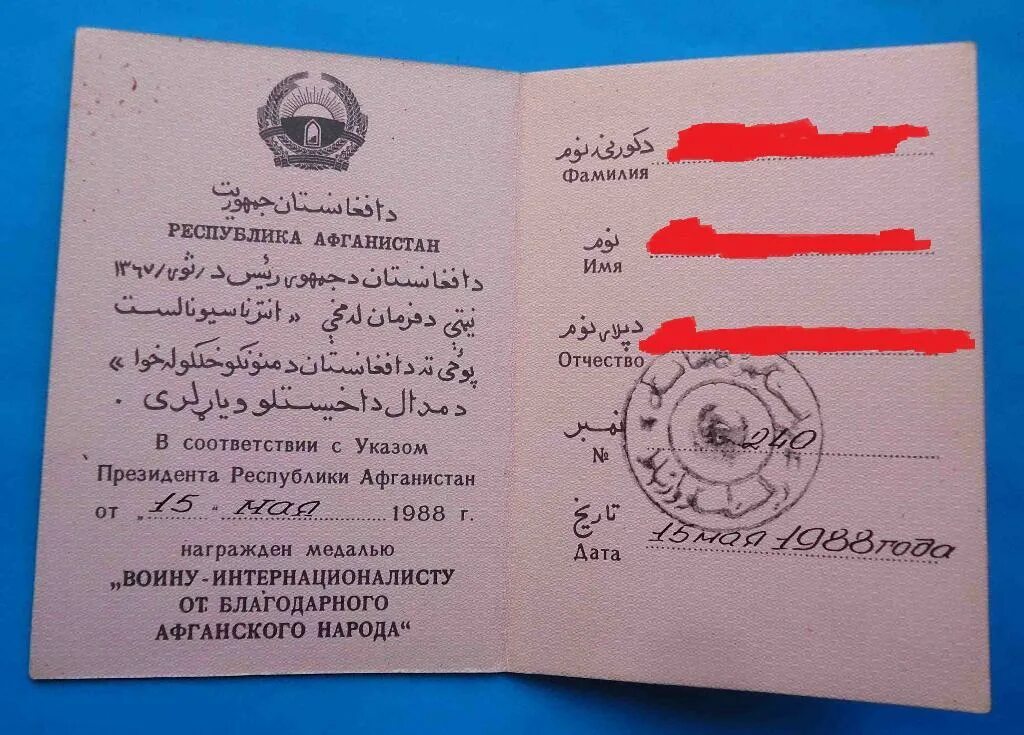 د افغانستان جمهوریت
РЕСПУБЛИКА АФГАНИСТАН
د افغانستان د جمهوری رئیس د / ثوری / ۱۳۶۷
نیټې د فرمان له مخې « انترناسیونالست
پوځی ته د افغانستان د منونکو خلکو له خوا »
د مدال د اخیستلو ویاړ لری .
В соответствии с Указом
Президента Республики Афганистан
от „15“ мая 1988 г.
награжден медалью
„ВОИНУ-ИНТЕРНАЦИОНАЛИСТУ
ОТ БЛАГОДАРНОГО
АФГАНСКОГО НАРОДА“
د کورنۍ نوم
Фамилия
نوم
Имя
د پلار نوم
Отчество
نمبر
№ 240
تاریخ
Дата 15 мая 1988 года